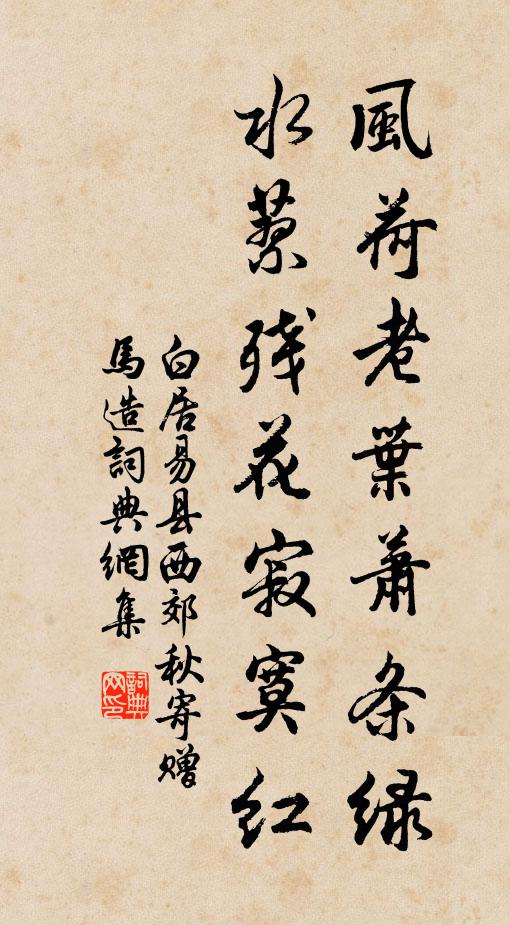 風荷老葉蕭条緑
水蓼残花寂寞紅
白居易县西郊秋寄赠
馬造詞典網集
詞典网印